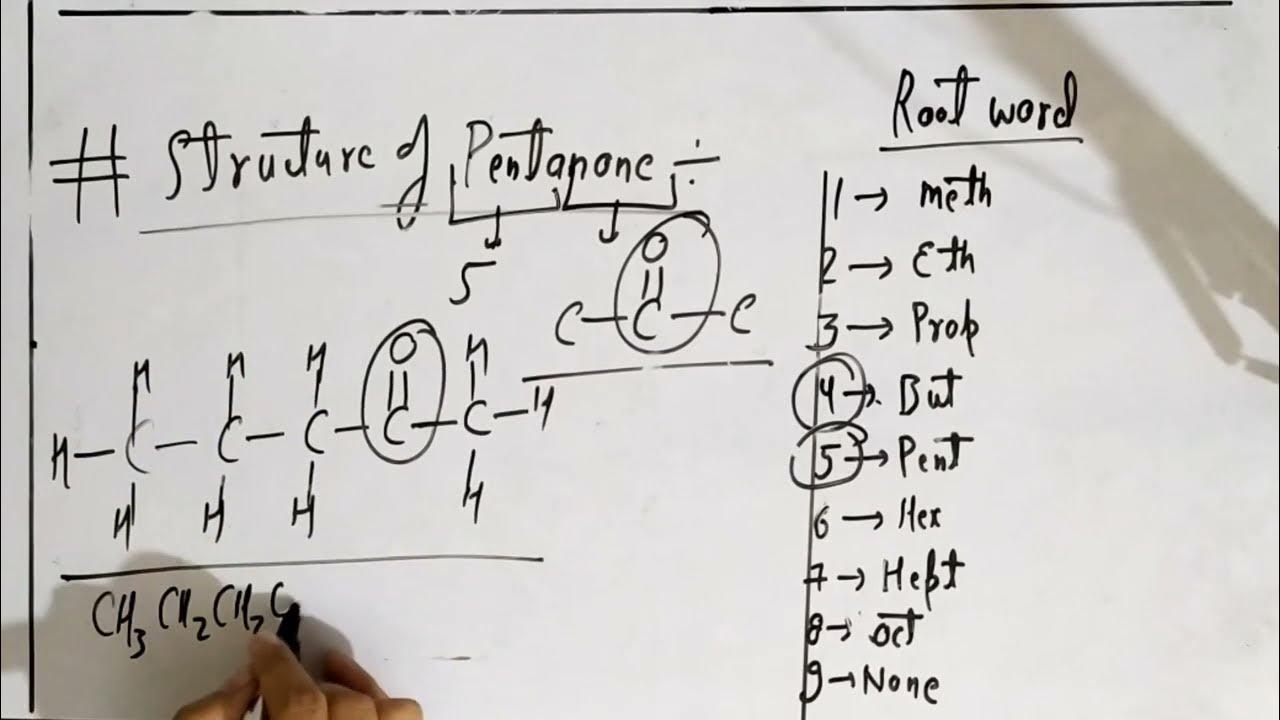 # Structure of Pentanone ÷
5
O
||
C—C—C
H H H O H
||
H—C—C—C—C—C—H
H H H H
CH3 CH2 CH2 C
Root word
1 → meth
2 → Eth
3 → Prop
4 → But
5 → Pent
6 → Hex
7 → Hept
8 → oct
9 → None